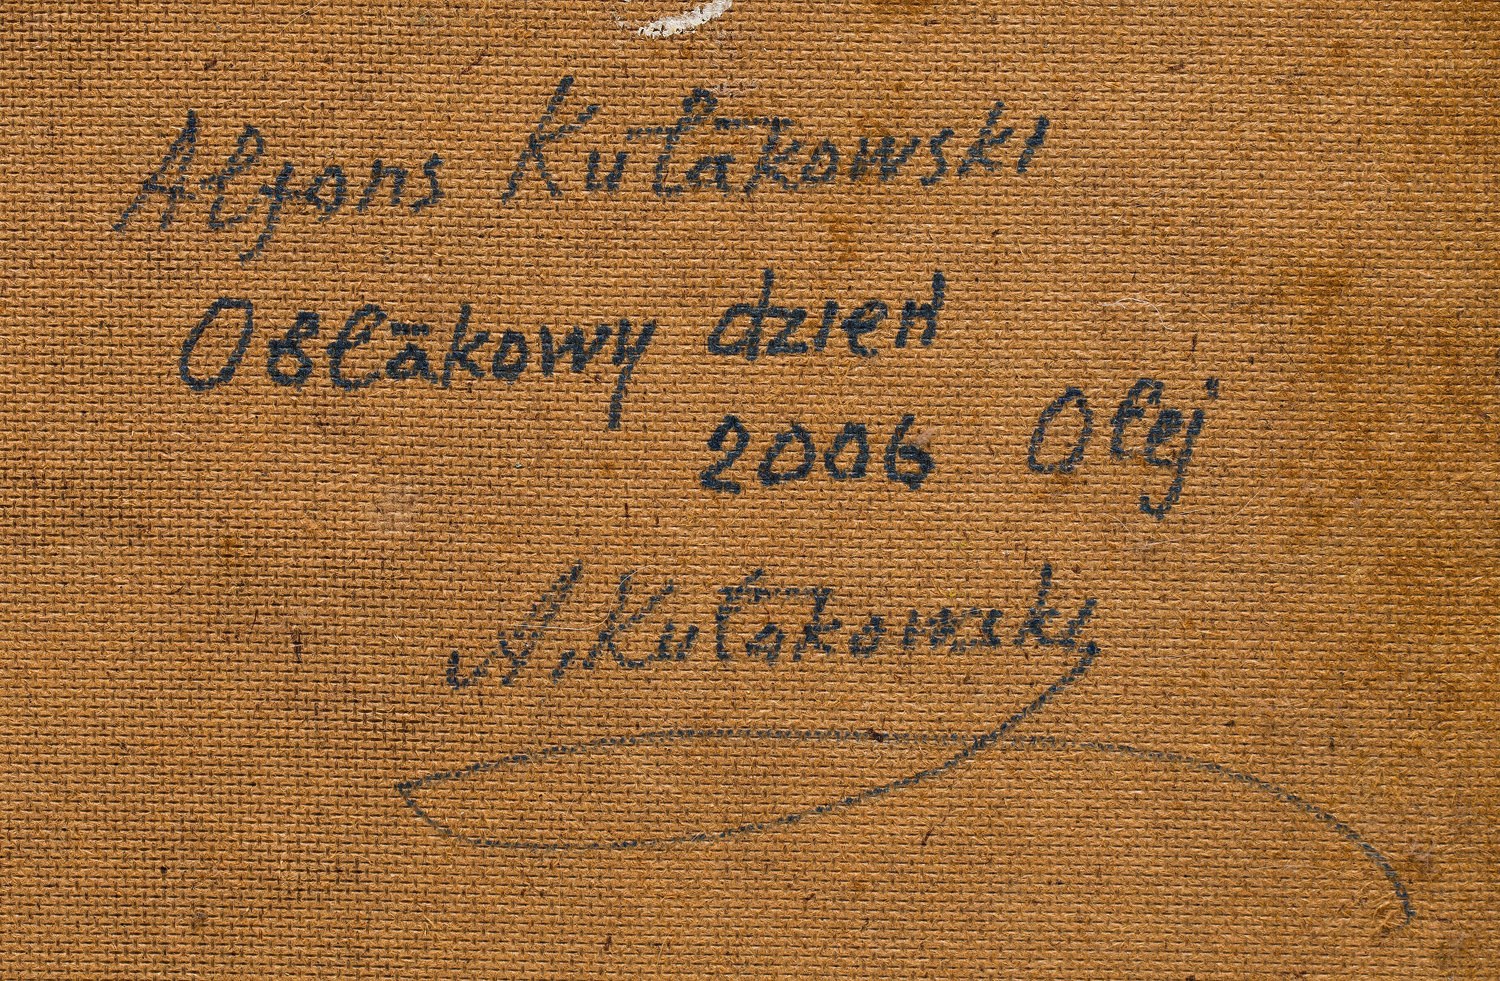 Alfons Kułakowski
Obłakowy dzień
2006 Olej
A. Kułakowski